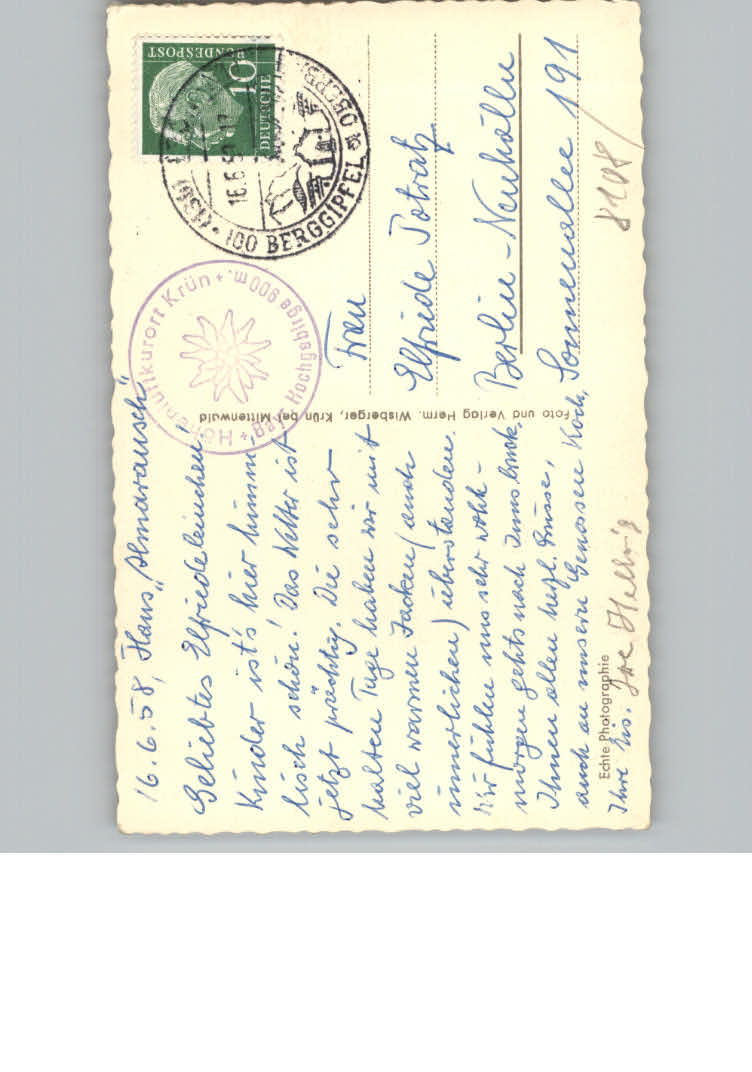 16.6.58, Haus „Almarausch“
Geliebtes Elfriedeleinchen!
Kinder ist's hier himm-
lisch schön! Das Wetter ist
jetzt prächtig. Die sehr
kalten Tage haben wir mit
viel warmen Jacken (auch
innerlichen) überstanden.
Wir fühlen uns sehr wohl –
morgen gehts nach Innsbruck.
Ihnen allen herzl. Grüsse,
auch an unsern Genossen Koch,
Ihre Lis.
Echte Photographie
Foto und Verlag Herm. Wisberger, Krün bei Mittenwald
Höhenluftkurort Krün + 900 m. +
Bayr. Hochgebirge
DEUTSCHE
BUNDESPOST
10
(13b)
16.6.58
100 BERGGIPFEL
Frau
Elfriede Potratz
Berlin-Neukölln
Sonnenallee 191